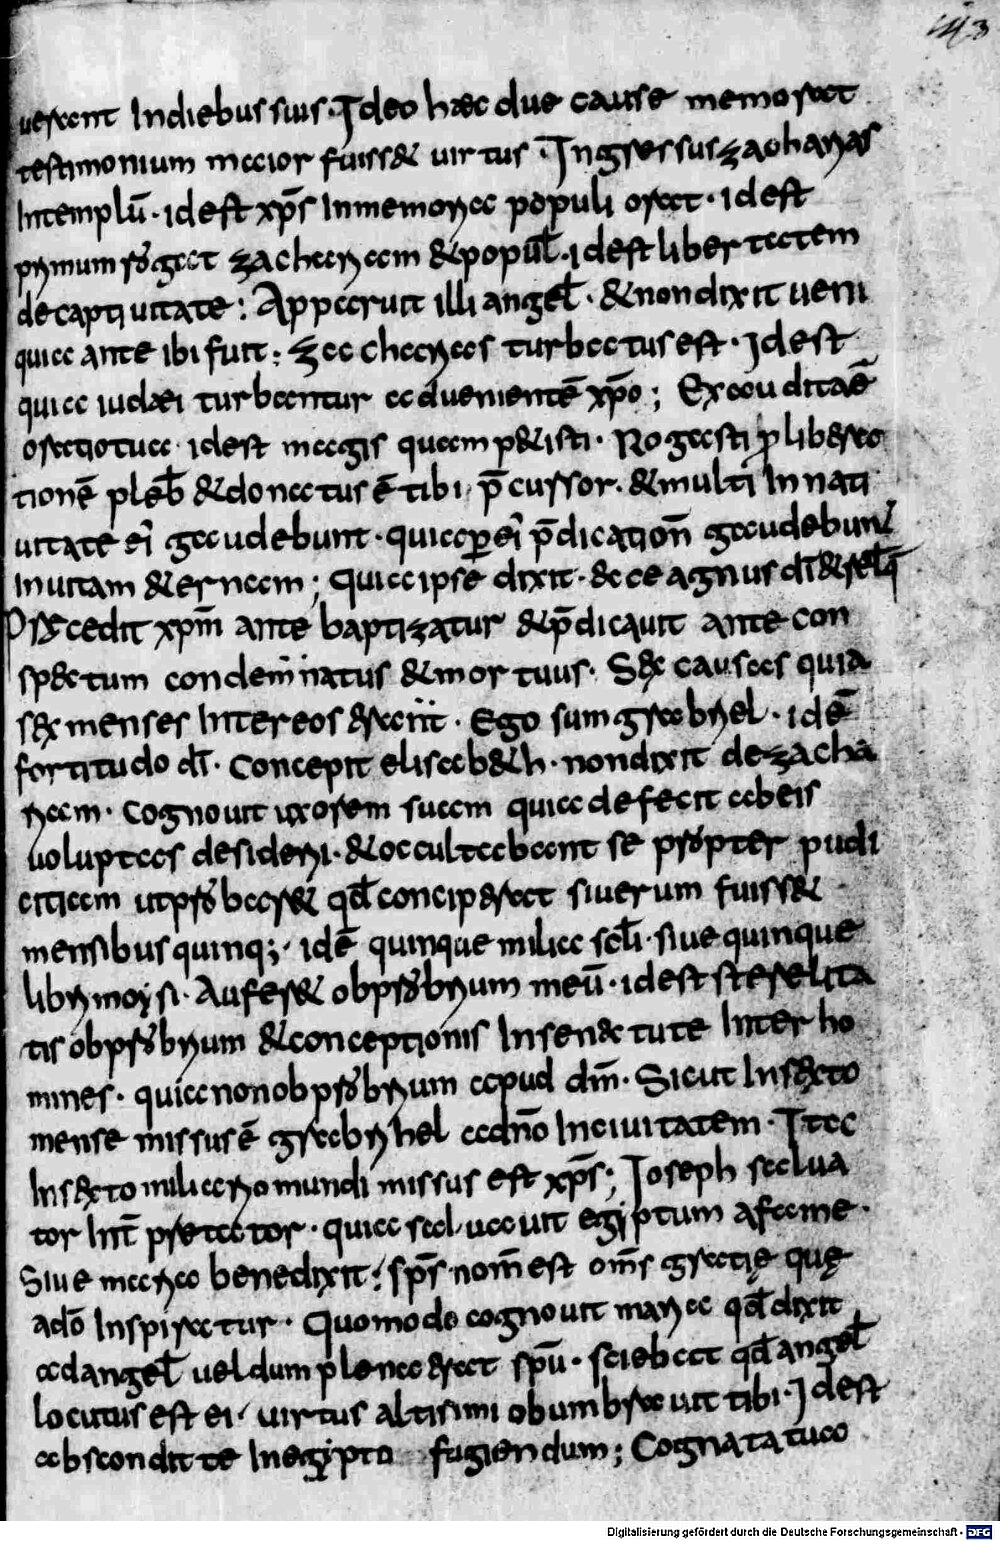 143
uerent Indiebus suis · Ideo haec due cause memorat
testimonium maior fuiss& uirtus · Ingressus zacharias
Intemplū · id est xp̄s Inmemoria populi orat · id est
primum rogat zachariam & popul̄ · id est libertatem
decaptiuitate : Apparuit illi angel̄ · & non dixit ueni
quia ante ibi fuit : Zacharias turbatus est · Id est
quia iudæi turbantur aduenientē xp̄o ; Exaudita ē
oratio tua · id est magis quam p&isti · Rogasti ꝓ libera
tionē pleb̄ & donatus ē tibi p̄cussor · & multi In nati
uitate ei gaudebunt · quia ꝑ ei p̄dication̄ gaudebunt
Inuitam &ernam ; quia ipse dixit · &ce agnus dī & rel̄q̄
Procedit xp̄m ante baptizatur & p̄dicauit ante con
sp&tum condemnatus & mortuus · S& causas quia
s&x menses Inter eos erant · Ego sum gabriel · id ē
fortitudo dī · Concepit elisab&h · non dixit de zacha
riam · Cognouit uxorem suam quia defecit ab eis
uoluptas desiderii · & occultabant se propter pudi
citiam ut probar& qd̄ conciperat si uerum fuiss&
mensibus quinq; · id ē quinque milia scl̄i · siue quinque
libri moysi · Aufer& obprobrium meū · id est sterelita
tis obprobrium & conceptionis In sen&tute Inter ho
mines · quia non obprobrium apud dm̄ · Sicut In s&xto
mense missus ē gabrihel addn̄o In ciuitatem · Ita
In s&xto miliario mundi missus est xp̄s ; Ioseph salua
tor Int̄ pretator · quia saluauit egiptum a fame ·
Siue maria benedixit ; sp̄s nom̄ est om̄s gratię quę
a dō Inspiratur · Quomodo cognouit maria qd̄ dixit
ad angel̄ uel dum plena erat spū · sciebat qd̄ angel̄
locutus est ei · uirtus altisimi obumbrauit tibi · Id est
abscondit te In egypto fugiendum ; Cognata tua
Digitalisierung gefördert durch die Deutsche Forschungsgemeinschaft - DFG